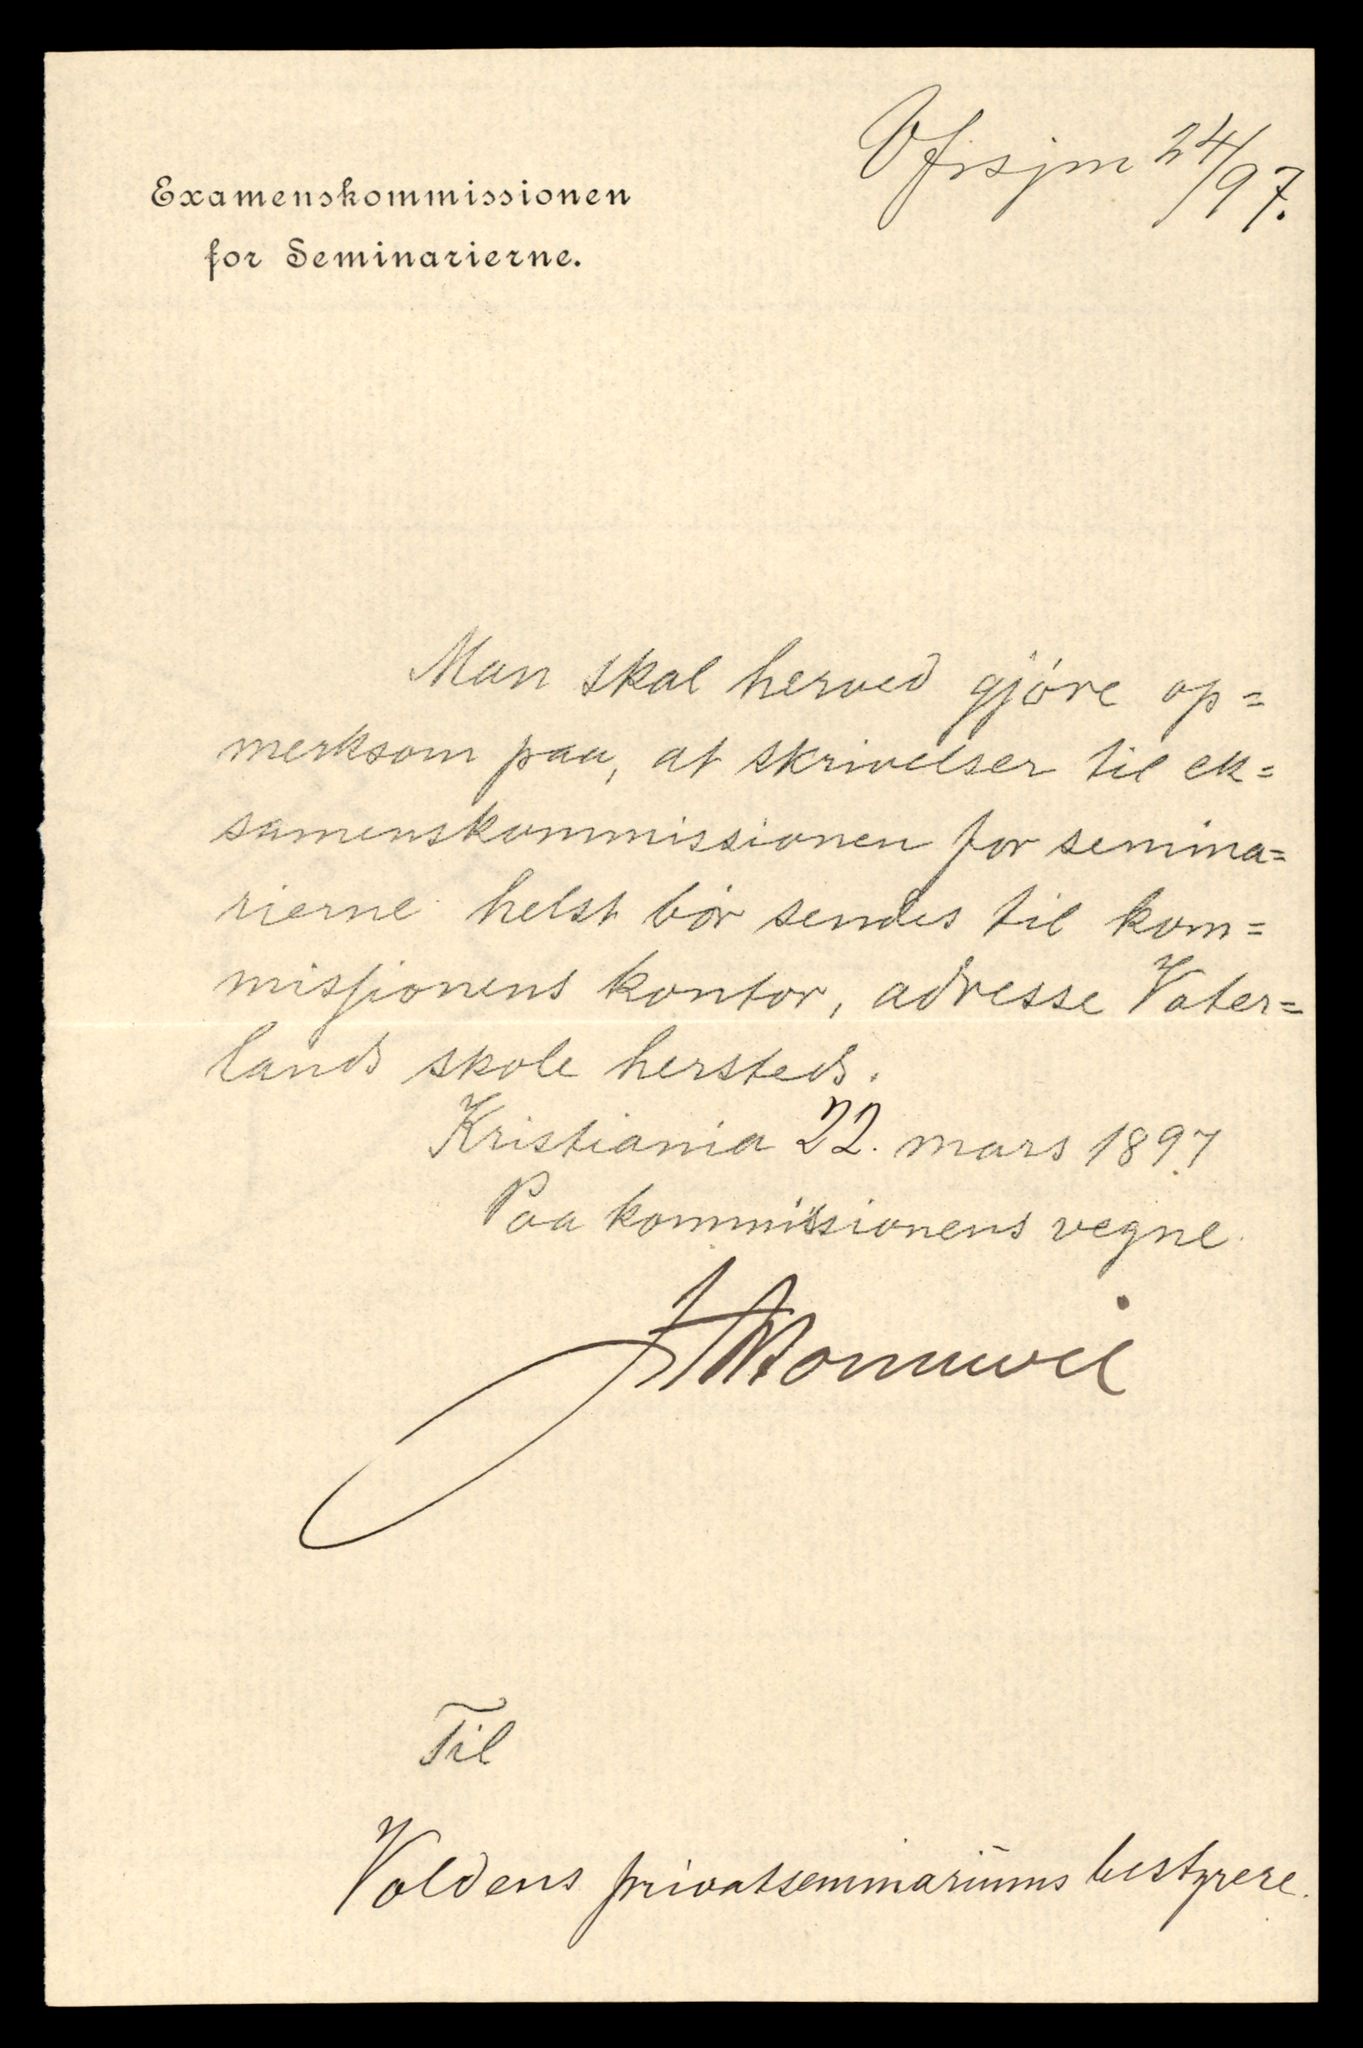 Examenskommissionen
for Seminarierne.
24/97.
Man skal herved gjöre op=
merksom paa, at skrivelser til ek=
samenskommissionen for semina=
rierne helst bör sendes til kom=
missionens kontor, adresse Vater=
lands skole hersteds.
Kristiania 22. mars 1897
Paa kommissionens vegne.
Til
Voldens privatseminariums bestyrere.